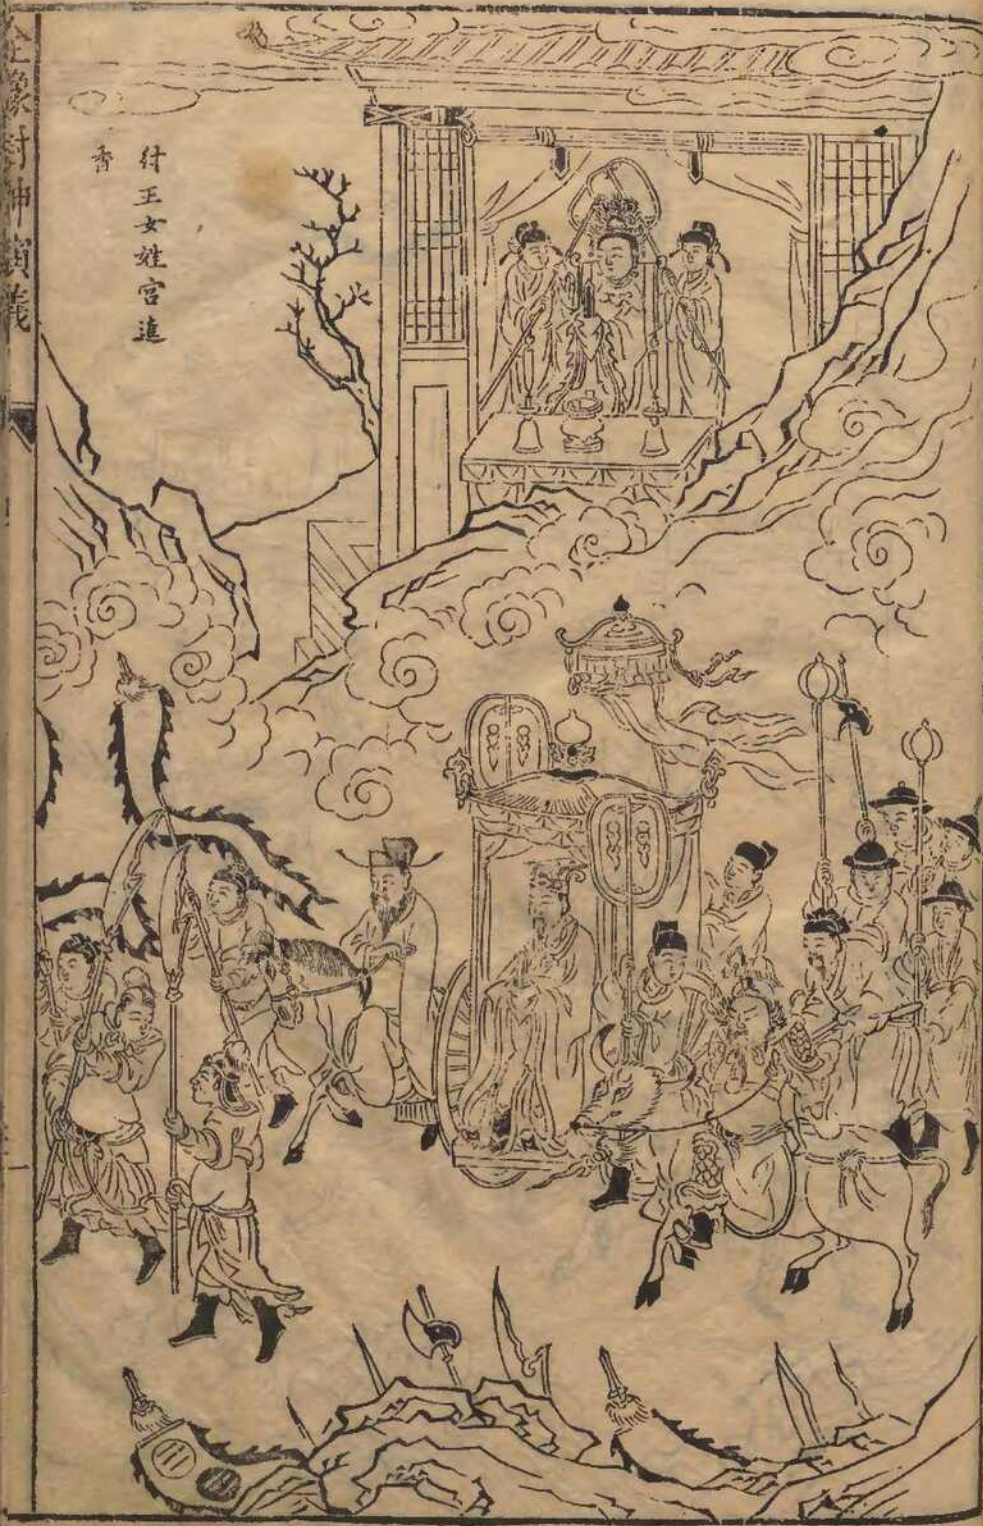 全像封神演義
紂王女姓宮進
香